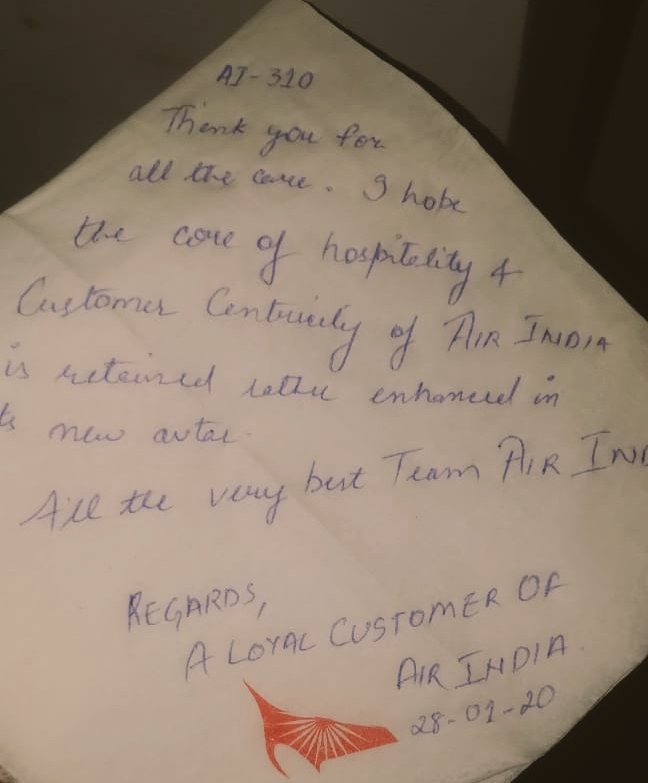 AI-310
Thank you for
all the care. I hope
the core of hospitality &
Customer Centricity of AIR INDIA
is retained rather enhanced in
ts new avtar.
All the very best Team AIR IND
REGARDS,
A LOYAL CUSTOMER OF
AIR INDIA
28-01-20